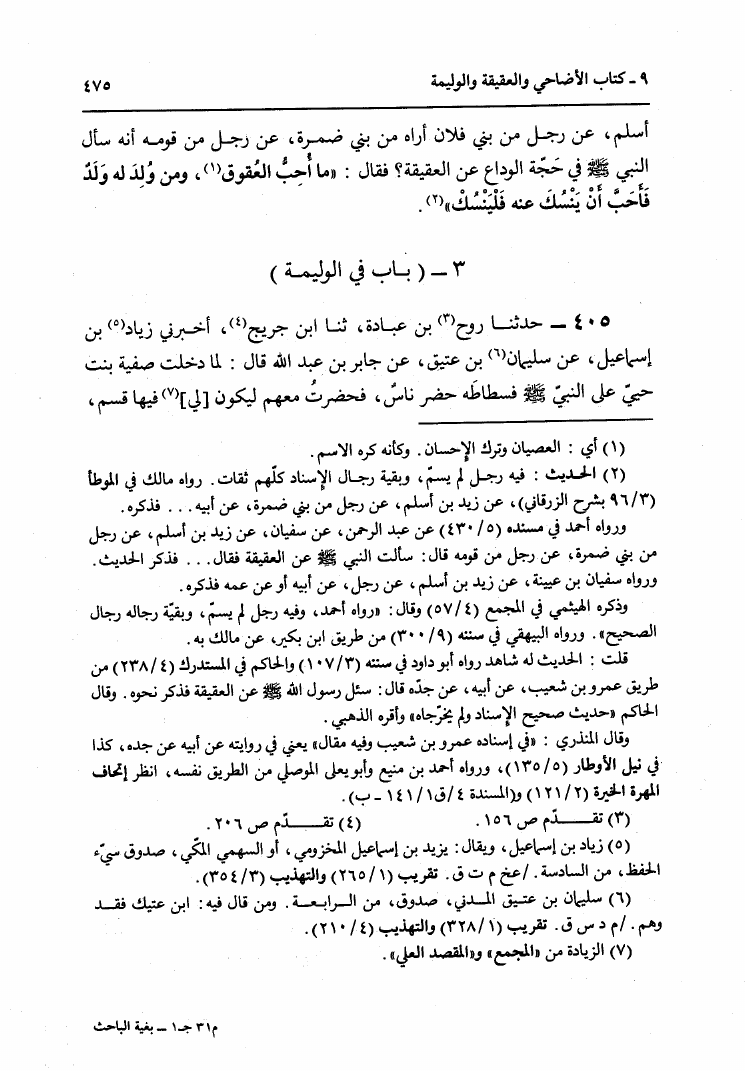 ٩ - كتاب الأضاحي والعقيقة والوليمة ٤٧٥
أسلم، عن رجل من بني فلان أراه من بني ضمرة، عن رجل من قومه أنه سأل
النبي ﷺ في حَجّة الوداع عن العقيقة؟ فقال : «ما أُحِبُّ العُقوق(١)، ومن وُلِدَ له وَلَدٌ
فَأَحَبَّ أَنْ يَنْسُكَ عنه فَلْيَنْسُكْ»(٢).
٣ - ( باب في الوليمة )
٤٠٥ - حدثنا روح(٣) بن عبادة، ثنا ابن جريج(٤)، أخبرني زياد(٥) بن
إسماعيل، عن سليمان(٦) بن عتيق، عن جابر بن عبد الله قال : لما دخلت صفية بنت
حييّ على النبيّ ﷺ فسطاطَه حضر ناسٌ، فحضرتُ معهم ليكون [لي](٧) فيها قسم،
(١) أي : العصيان وترك الإحسان. وكأنه كره الاسم.
(٢) الحديث : فيه رجل لم يسمّ، وبقية رجال الإسناد كلّهم ثقات. رواه مالك في الموطأ
(٩٦/٣ بشرح الزرقاني)، عن زيد بن أسلم، عن رجل من بني ضمرة، عن أبيه... فذكره.
ورواه أحمد في مسنده (٤٣٠/٥) عن عبد الرحمن، عن سفيان، عن زيد بن أسلم، عن رجل
من بني ضمرة، عن رجل من قومه قال: سألت النبي ﷺ عن العقيقة فقال... فذكر الحديث.
ورواه سفيان بن عيينة، عن زيد بن أسلم، عن رجل، عن أبيه أو عن عمه فذكره.
وذكره الهيثمي في المجمع (٥٧/٤) وقال: «رواه أحمد، وفيه رجل لم يسمّ، وبقيّة رجاله رجال
الصحيح». ورواه البيهقي في سننه (٣٠٠/٩) من طريق ابن بكير، عن مالك به.
قلت : الحديث له شاهد رواه أبو داود في سننه (١٠٧/٣) والحاكم في المستدرك (٢٣٨/٤) من
طريق عمرو بن شعيب، عن أبيه، عن جدّه قال: سئل رسول الله ﷺ عن العقيقة فذكر نحوه. وقال
الحاكم «حديث صحيح الإسناد ولم يخرّجاه» وأقره الذهبي.
وقال المنذري : «في إسناده عمرو بن شعيب وفيه مقال» يعني في روايته عن أبيه عن جده، كذا
في نيل الأوطار (١٣٥/٥)، ورواه أحمد بن منيع وأبو يعلى الموصلي من الطريق نفسه، انظر إتحاف
المهرة الخيرة (١٢١/٢) و(المسندة ٤/ق١٤١/١ - ب).
(٣) تقـــدّم ص ١٥٦. (٤) تقـــدّم ص ٢٠٦.
(٥) زياد بن إسماعيل، ويقال: يزيد بن إسماعيل المخزومي، أو السهمي المكّي، صدوق سيّء
الحفظ، من السادسة. /عخ م ت ق. تقريب (٢٦٥/١) والتهذيب (٣٥٤/٣).
(٦) سليمان بن عتيق المدني، صدوق، من الرابعة. ومن قال فيه: ابن عتيك فقد
وهم. /م د س ق. تقريب (٣٢٨/١) والتهذيب (٢١٠/٤).
(٧) الزيادة من «المجمع» و«المقصد العلي».
م٣١ جـ١ - بغية الباحث